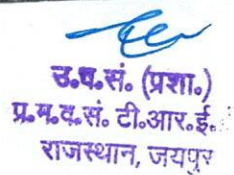 उ.व.सं. (प्रशा.)
प्र.म.व.सं. टी.आर.ई.
राजस्थान, जयपुर